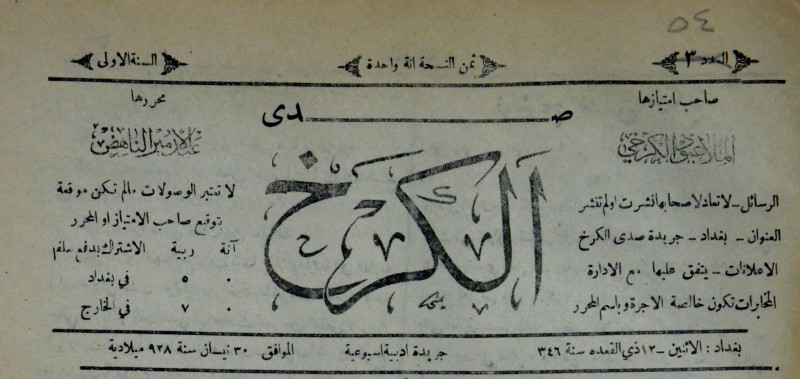 ٥٤
العدد ٣
ثمن النسخة انة واحدة
السنة الاولى
صدى
الكرخ
صاحب امتيازها
الملا عبود الكرخي
الرسائل ـ لا تعاد لاصحابها نشرت او لم تنشر
العنوان ـ بغداد ـ جريدة صدى الكرخ
الاعلانات ـ يتفق عليها مع الادارة
المخابرات تكون خالصة الاجرة وباسم المحرر
محررها
عبدالامير الناهض
لا تعتبر الوصولات مالم تكن موقعة
بتوقيع صاحب الامتياز او المحرر
آنة ربية الاشتراك يدفع سلفم
٠ ٥ في بغداد
٠ ٧ في الخارج
بغداد : الاثنين ـ ١٢ ذي القعده سنة ٣٤٦
جريدة ادبية اسبوعية
الموافق ٣٠ نيسان سنة ٩٢٨ ميلادية